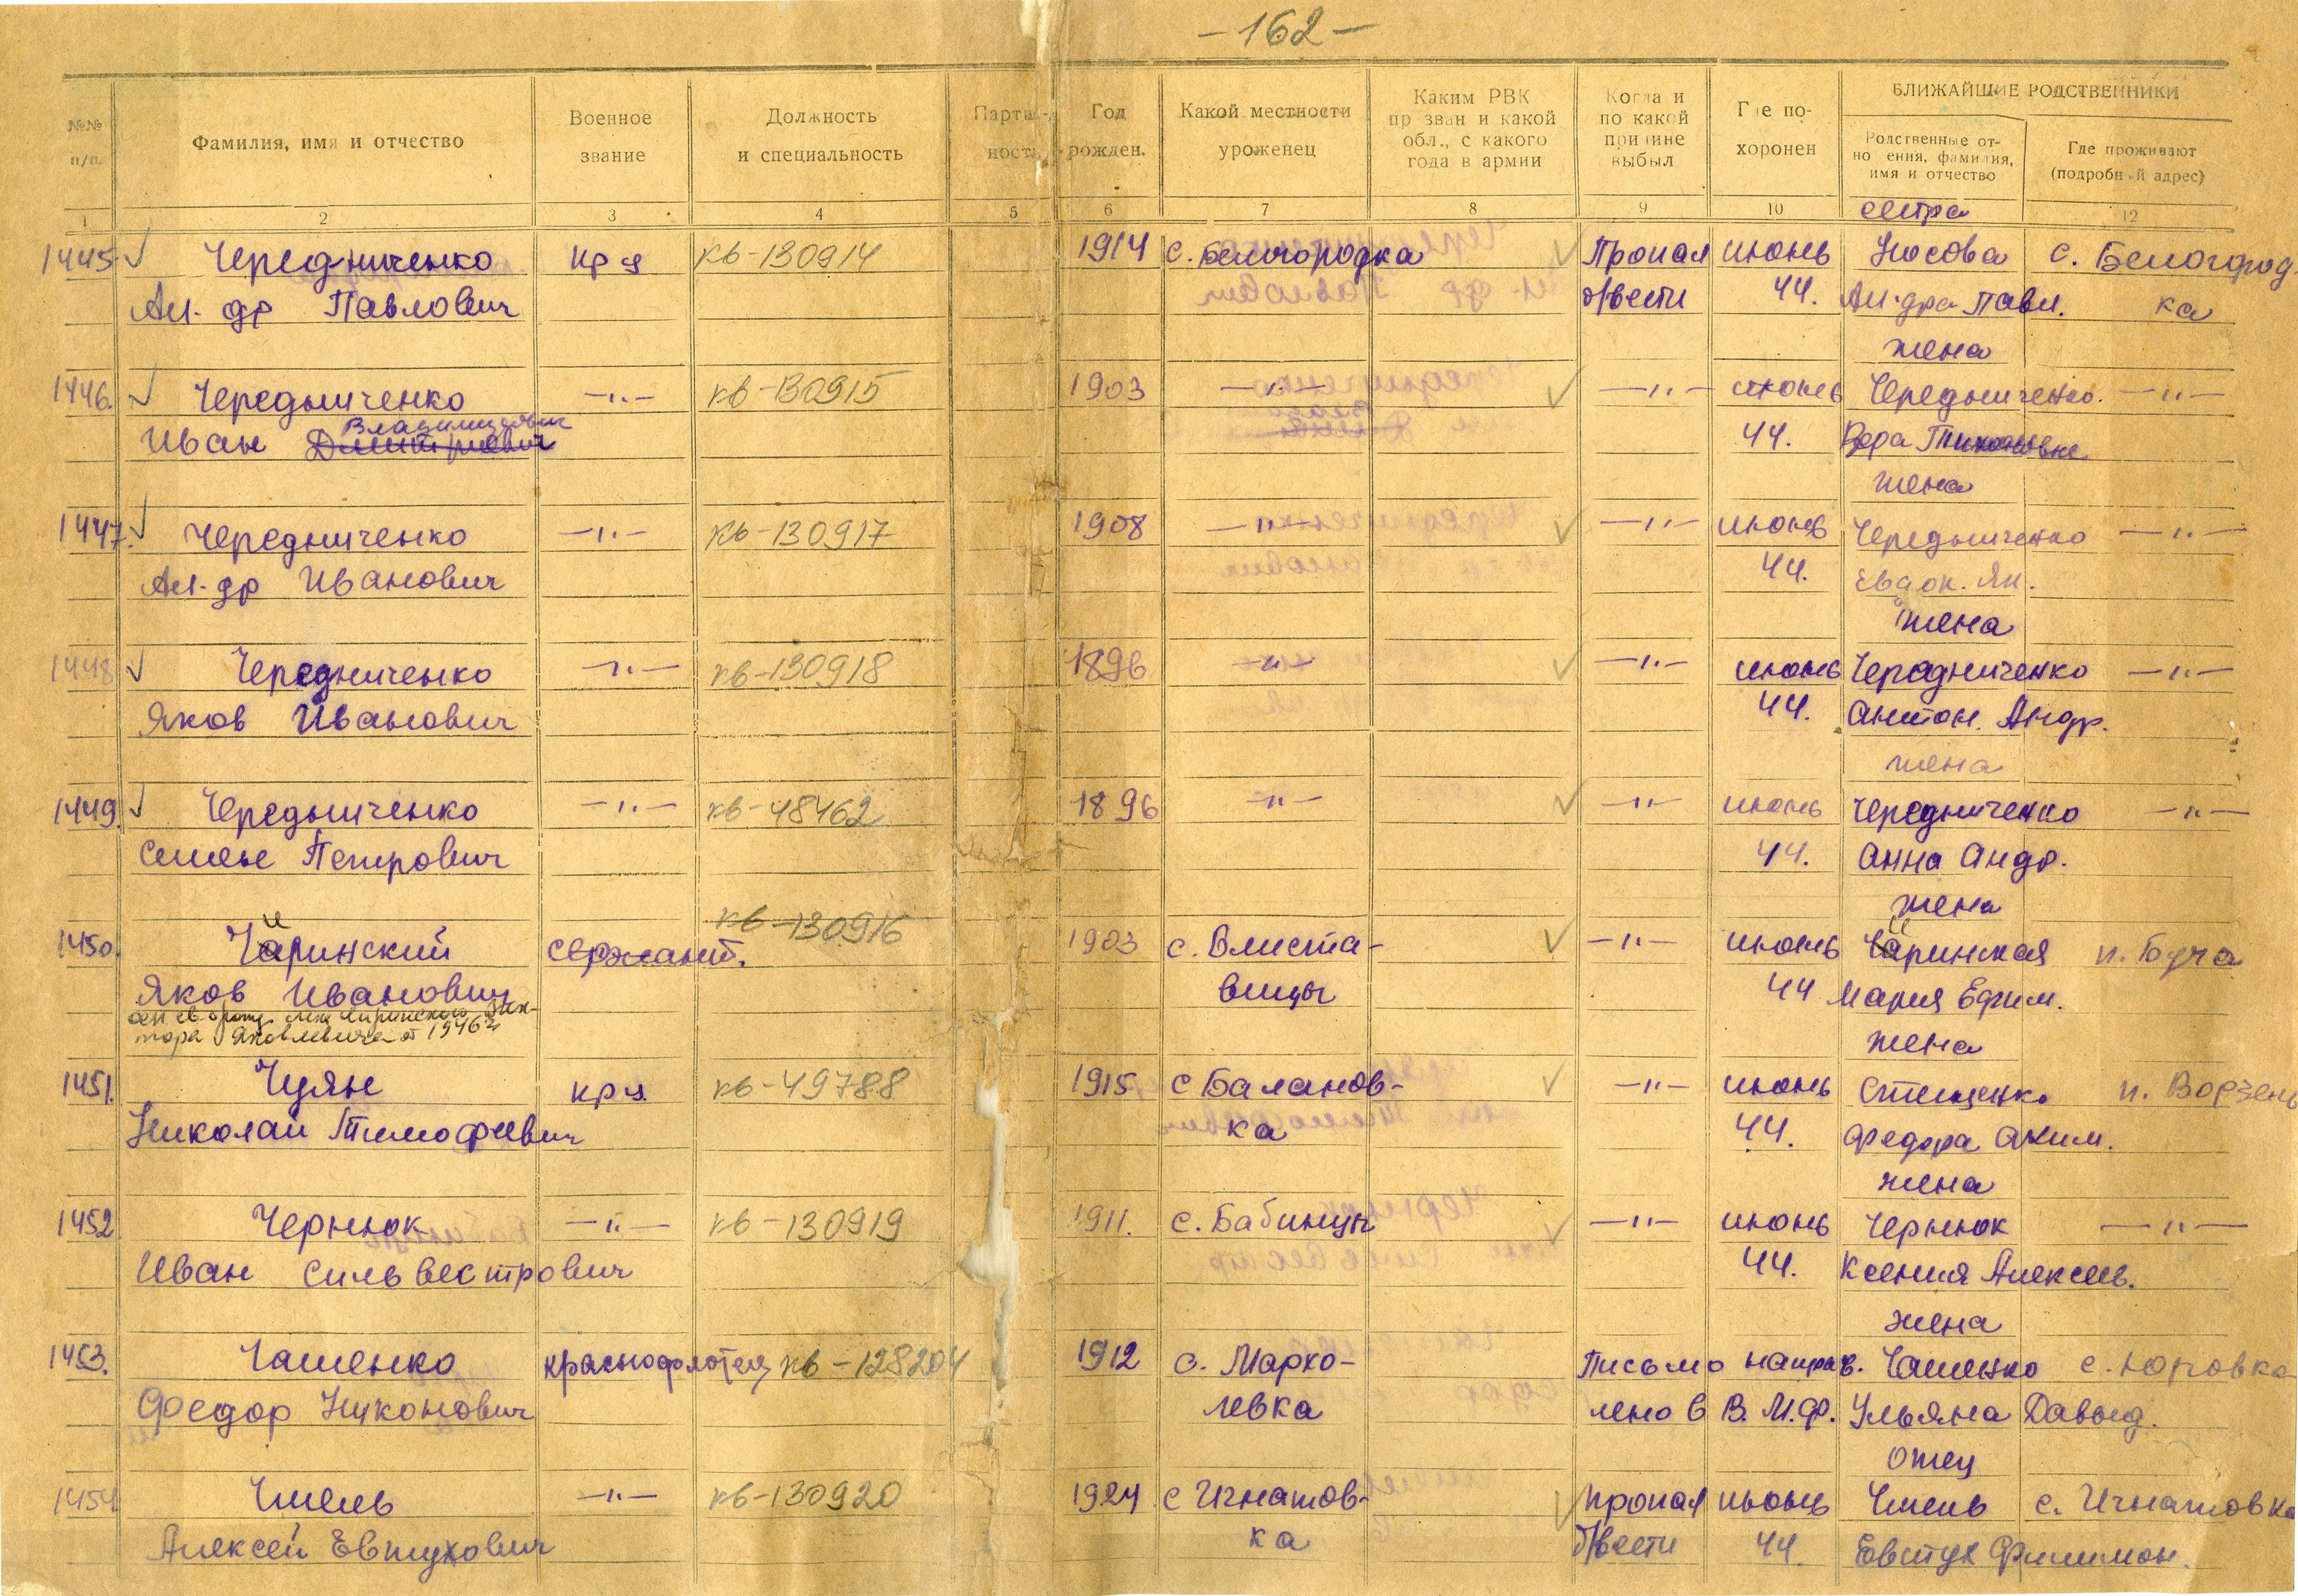 -162-
БЛИЖАЙШИЕ РОДСТВЕННИКИ
№№ п/п.
Фамилия, имя и отчество
Военное звание
Должность и специальность
Год рожден.
Какой местности уроженец
Каким РВК призван и какой обл., с какого года в армии
Когда и по какой причине выбыл
Где похоронен
Родственные отношения, фамилия, имя и отчество
Где проживают (подробный адрес)
1 2 3 4 5 6 7 8 9 10 12
сестра
1445 Чередниченко кр-ц кв-130914 1914 с. Белгородка Пропал июнь Носова с. Белогород-
Ал-др Павлович б/вести 44. Ал-дра Павл. ка
жена
1446. Чередниченко —"— кв-130915 1903 —"— —"— июнь Чередниченко. —"—
Владимирович
Иван Дмитриевич 44. Вера Тихоновна
жена
1447. Чередниченко —"— кв-130917 1908 —"— —"— июнь Чередниченко —"—
Ал-др Иванович 44. Евдок. Як.
жена
1448 Чередниченко —"— кв-130918 1896 —"— —"— июнь Чередниченко —"—
Яков Иванович 44. Антон. Андр.
жена
1449. Чередниченко —"— кв-48462 1896 —"— —"— июнь Чередниченко —"—
Семен Петрович 44. Анна Андр.
кв-130916 жена
1450. Чиринский сержант. 1903 с. Блиста- —"— июнь Чиринская п. Буча
Яков Иванович вицы 44 Мария Ефим.
Чиринского Вик-
тора Яковлевича от 1946 г
жена
1451. Чуян кр-ц. кв-49788 1915 с Баланов- —"— июнь Стещенко п. Ворзель
Николай Тимофеевич ка 44. Федора Аким.
жена
1452 Чернюк —"— кв-130919 1911. с. Бабинцы —"— июнь Чернюк —"—
Иван Сильвестрович 44. Ксения Алексеев.
жена
1453. Чашенко краснофлотец кв-128204 1912 с. Марко- Письмо направ. Чашенко с. Юровка
Федор Никонович левка лено в В.М.Ф. Ульяна Давыд.
отец
1454 Чмель —"— кв-130920 1924 с Игнатов- пропал июнь Чмель с. Игнатовка
Алексей Евтухович ка б/вести 44. Евтух Филимон.